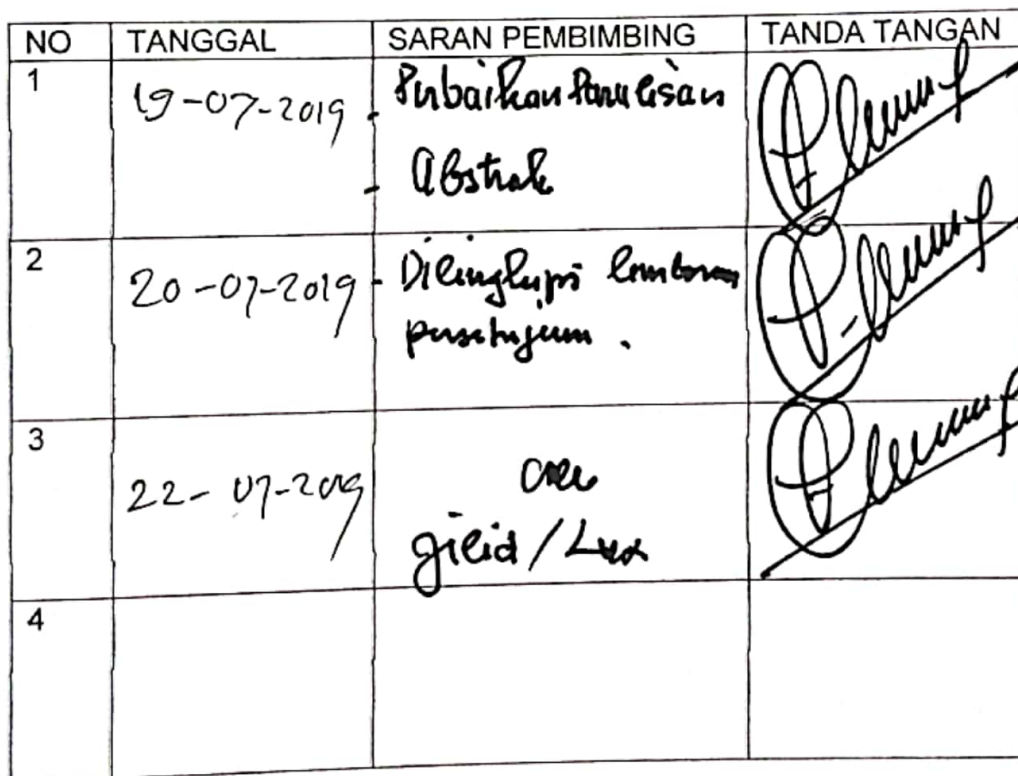 NO TANGGAL SARAN PEMBIMBING TANDA TANGAN
1 19-07-2019 - Perbaikan Penulisan
- Abstrak
2 20-07-2019 - Dilengkapi lembaran
persetujuan .
3 22-07-2019 acc
jilid / Lux
4